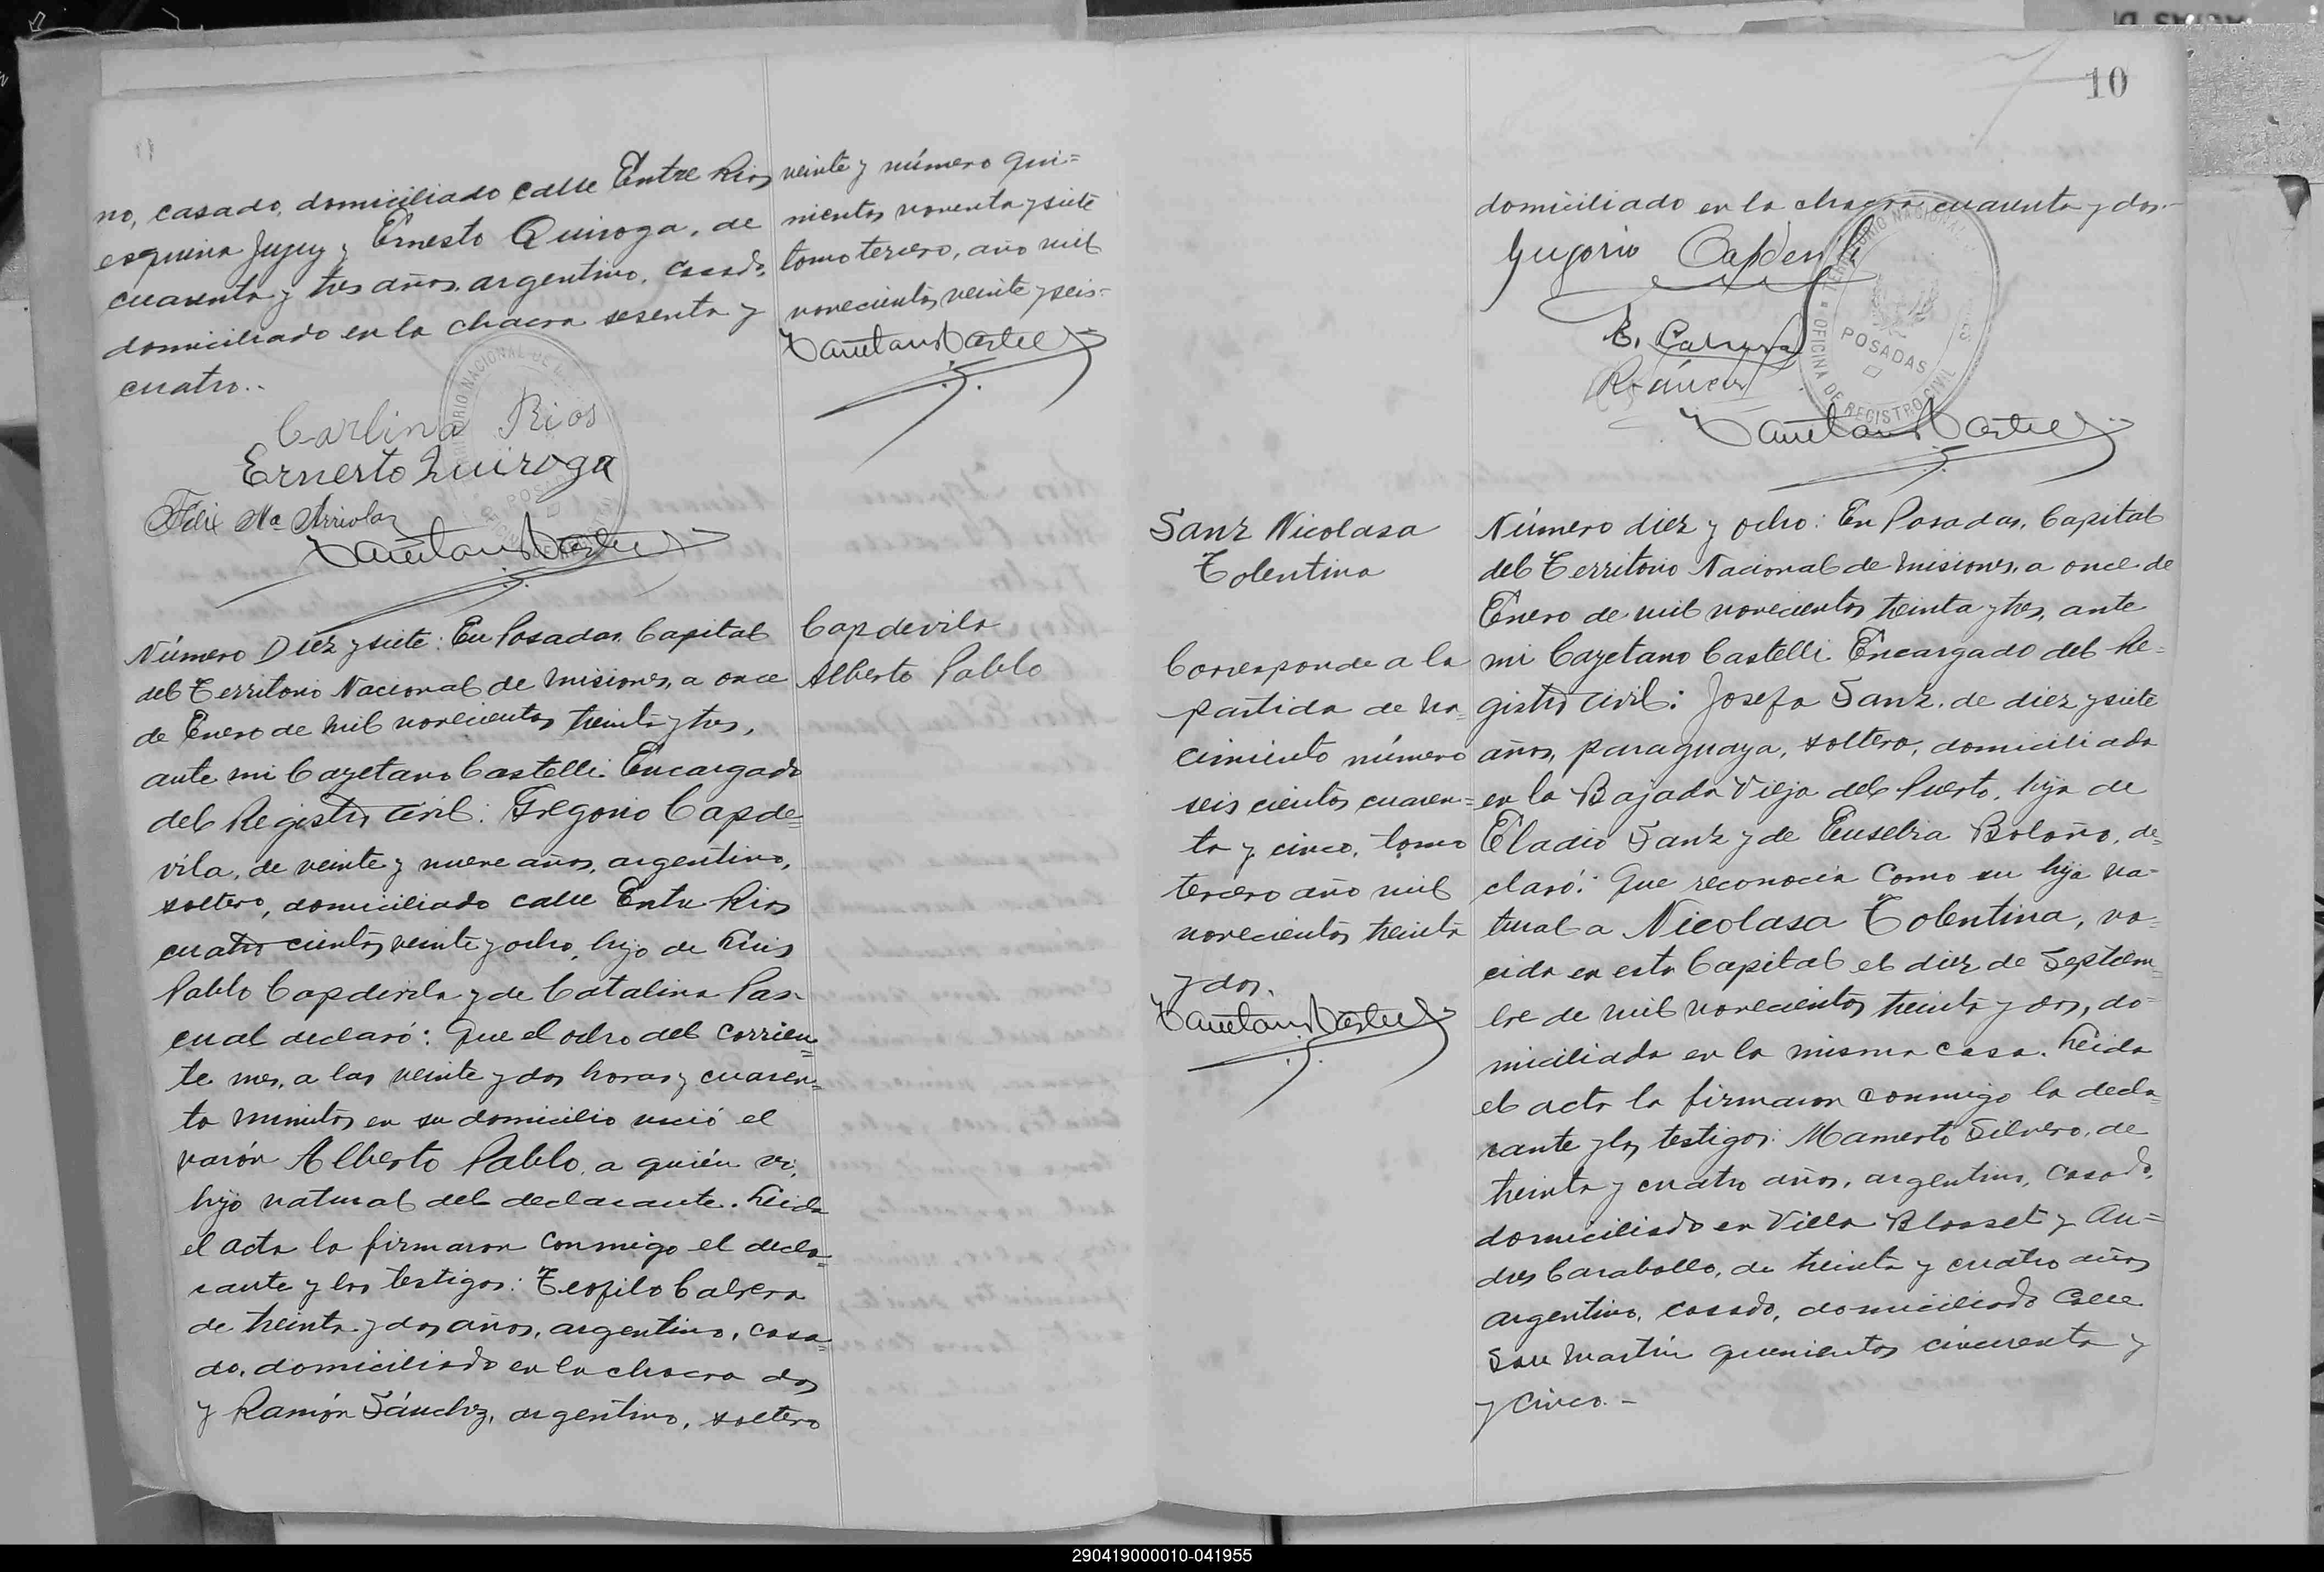 no, casado, domiciliado calle Entre Rios
esquina Jujuy y Ernesto Quiroga, de
cuarenta y tres años, argentino, casado,
domiciliado en la chacra sesenta y
cuatro..
Carlina Rios
Ernesto Quiroga
Felix Ma Arriola
veinte y número qui=
nientos noventa y siete
tomo tercero, año mil
novecientos veinte y seis-
Número Diez y siete: En Posadas, Capital
del Territorio Nacional de Misiones, a once
de Enero de mil novecientos treinta y tres,
ante mi Cayetano Castelli Encargado
del Registro Civil: Gregorio Capde=
vila, de veinte y nueve años, argentino,
soltero, domiciliado calle Entre Rios
cuatro cientos veinte y ocho, hijo de Luis
Pablo Capdevila y de Catalina Pas-
cual declaró: Que el ocho del corrien=
te mes, a las veinte y dos horas y cuaren=
ta minutos en su domicilio nació el
varón Alberto Pablo, a quién vi,
hijo natural del declarante. Leida
el acta la firmaron conmigo el decla=
rante y los testigos: Teofilo Cabrera
de treinta y dos años, argentino, casa=
do, domiciliado en la chacra dos
y Ramón Sánchez, argentino, soltero
Capdevila
Alberto Pablo
10
domiciliado en la chacra cuarenta y dos.-
Gregorio Capdevila
TERRITORIO NACIONAL
POSADAS
OFICINA DE REGISTRO CIVIL
Sanz Nicolasa
Tolentina
Corresponde a la
partida de na=
cimiento número
seis cientos cuaren=
ta y cinco, tomo
tercero año mil
novecientos treinta
y dos.
Número diez y ocho: En Posadas, Capital
del Territorio Nacional de Misiones, a once de
Enero de mil novecientos treinta y tres, ante
mi Cayetano Castelli Encargado del Re=
gistro Civil: Josefa Sanz, de diez y siete
años, paraguaya, soltera, domiciliada
en la Bajada Vieja del Puerto, hija de
Eladio Sanz y de Eusebia Bolaño, de=
claró: Que reconocía como su hija na-
tural a Nicolasa Tolentina, na=
cida en esta Capital el diez de Septiem=
bre de mil novecientos treinta y dos, do=
miciliada en la misma casa. Leida
el acta la firmaron conmigo la decla=
rante y los testigos: Mamerto Silvero, de
treinta y cuatro años, argentino, casado,
domiciliado en Villa Blosset y An=
dres Caraballo, de treinta y cuatro años
argentino, casado, domiciliado calle
San Martín quinientos cincuenta y
y cinco.-
290419000010-041955